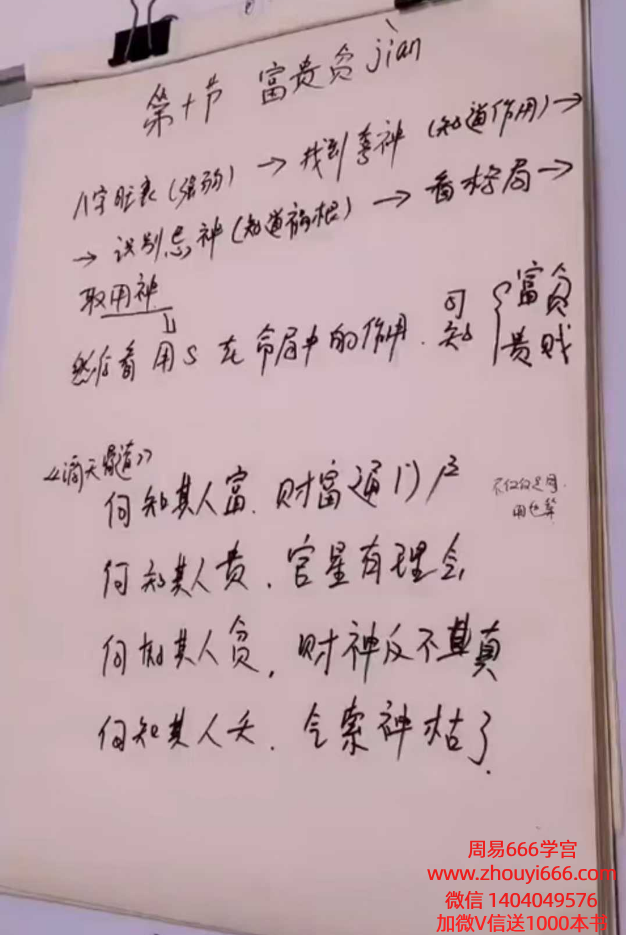 第十节 富贵贫jiàn
八字旺衰(强弱) → 找到喜神 (知道作用) →
→ 识别忌神(知道病根) → 看格局 →
取用神
然后看用S在命局中的作用. 可知 { 富贫 贵贱
《滴天髓》
何知其人富. 财富通门户
不仅仅是网
何知其人贵. 官星有理会
何知其人贫. 财神反不真
何知其人夭. 气索神枯了.
周易666学宫
www.zhouyi666.com
微信 1404049576
加微V信送1000本书